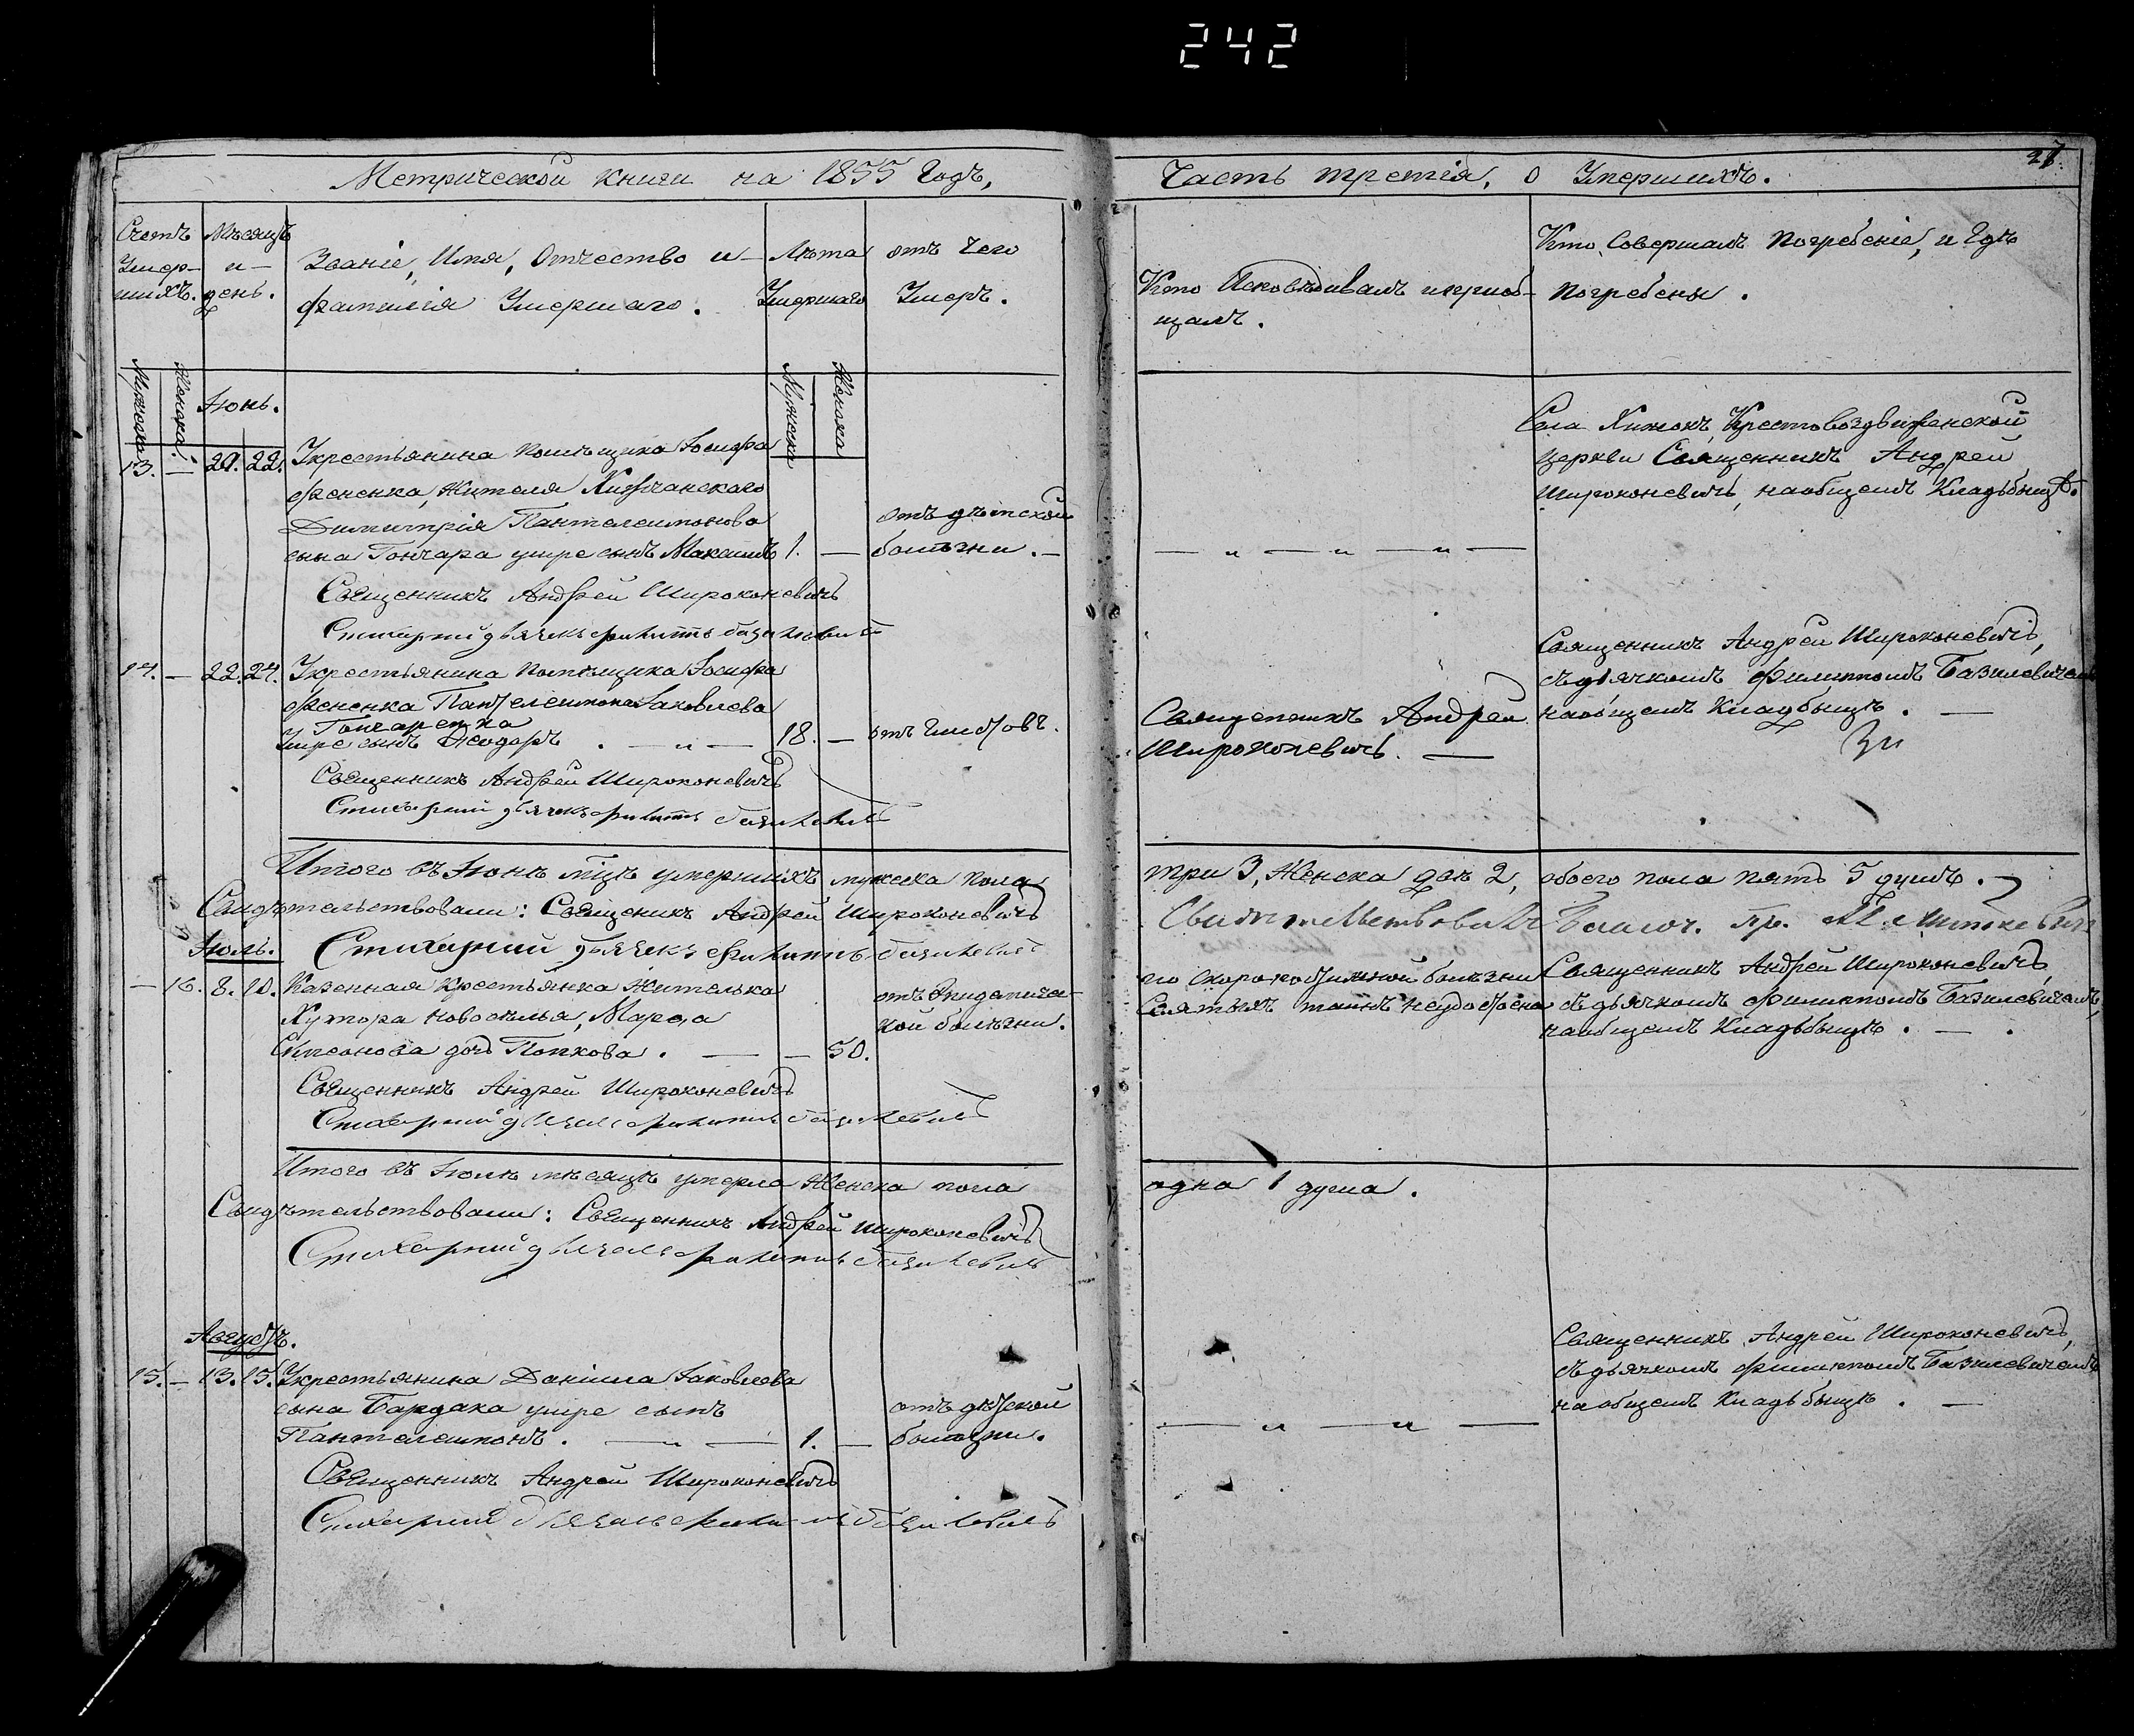 242
Метрической книги на 1855 Годъ,
Счетъ
Умер-
шихъ.
Мѣсяцъ
и
день.
Званіе, Имя, Отчество и
фамилія Умершаго.
Лѣта
Умершаго
отъ чего
Умеръ.
Мужеска
Женска
Мужеска
Женска
Іюнь.
13. — 20. 22. У крестьянина помѣщика Іосифа
Фененка, жителя
Димитрія Пантелеимонова
сына Гончара умре сынъ Максимъ 1. —
отъ дѣтской
болѣзни. —
Священникъ Андрей Широконевичъ
Стихарный дьячекъ Филиппъ Базилевичъ
14. — 22. 24. У крестьянина помѣщика Іосифа
Фененка Пантелеимона Яковлева
Гончаренка
умре сынъ Ѳеодоръ . — „ — 18. — отъ глистовъ.
Священникъ Андрей Широконевичъ
Стихарный дьячекъ Филиппъ Базилевичъ
Итого въ Іюнѣ мцѣ умершихъ мужеска пола
Свидѣтельствовали: Священикъ Андрей Широконевичъ
Стихарный дьячекъ Филиппъ Базилевичъ
Іюль.
— 16. 8. 10. Казенная крестьянка жителька
Хутора Новоселья, Марѳа
дочь Попкова . — — 50.
отъ Эпидемичес-
кой болѣзни.
Священникъ Андрей Широконевичъ
Стихарный дьячекъ Филиппъ Базилевичъ
Итого въ Іюлѣ мѣсяцѣ умерла Женска пола
Свидѣтельствовали: Священникъ Андрей Широконевичъ
Стихарный дьячекъ Филиппъ Базилевичъ
Августъ.
15. — 13. 15. У крестьянина Даніила Яковлева
сына Бардака умре сынъ
Пантелеимонъ . — „ — 1. —
отъ дѣтской
болѣзни.
Священникъ Андрей Широконевичъ
Стихарный дьячекъ Филиппъ Базилевичъ
Часть третія, о Умершихъ.
27.
Кто Исповѣдывалъ и пріоб-
щалъ.
Кто Совершалъ погребеніе, и Гдѣ
погребены.
— „ — „ — „ —
Села Хижокъ, Крестовоздвиженской
церкви Священникъ Андрей
Широконевичъ, на общемъ Кладьбищѣ.
Священникъ Андрей
Широконевичъ. —
Священникъ Андрей Широконевичъ,
съ дьячкомъ Филиппомъ Базилевичемъ
на общемъ Кладбыщѣ. —
три 3, Женска двѣ 2, обоего пола пять 5 душъ.
Свидѣтельствовалъ Благоч. Пр.
по скоропостижной болѣзни
Святыхъ таинъ неудостоена
Священникъ Андрей Широконевичъ,
съ дьячкомъ Филиппомъ Базилевичемъ,
на общемъ Кладьбыщѣ . — .
одна 1 душа.
— „ — „ —
Священникъ Андрей Широконевичъ,
съ дьячкомъ Филиппомъ Базилевичемъ
на общемъ Кладьбыщѣ . —